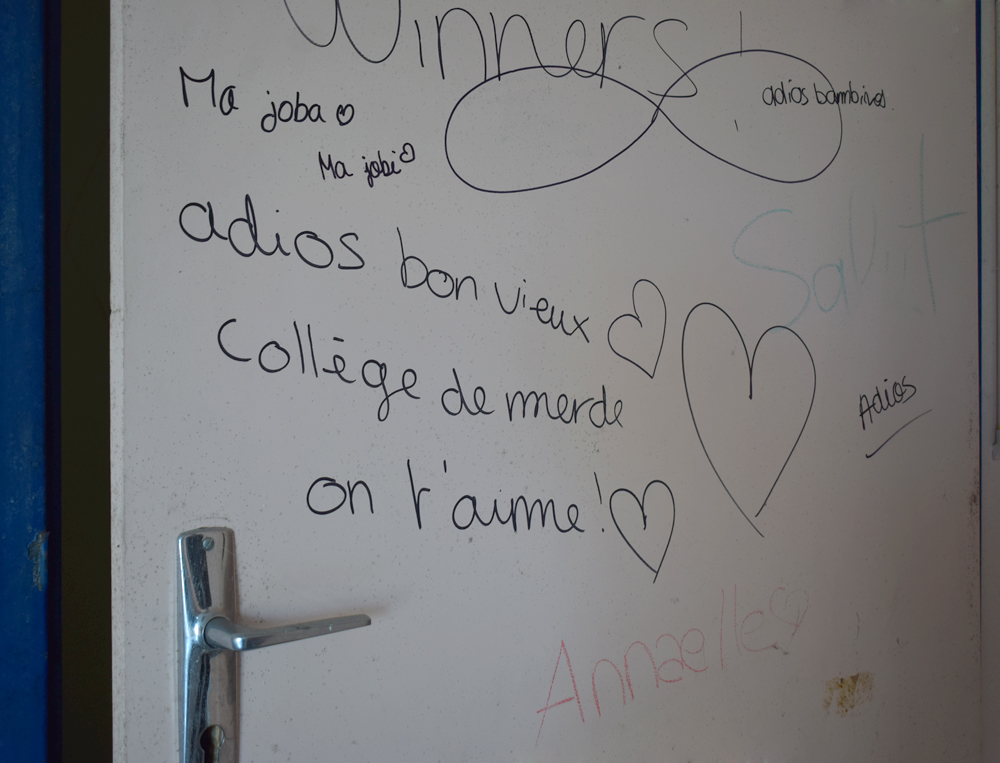 Winners
Ma joba
adios bambinos.
Ma jobi
adios bon vieux
Salut
Collège de merde
Adios
on t'aime!
Annaelle